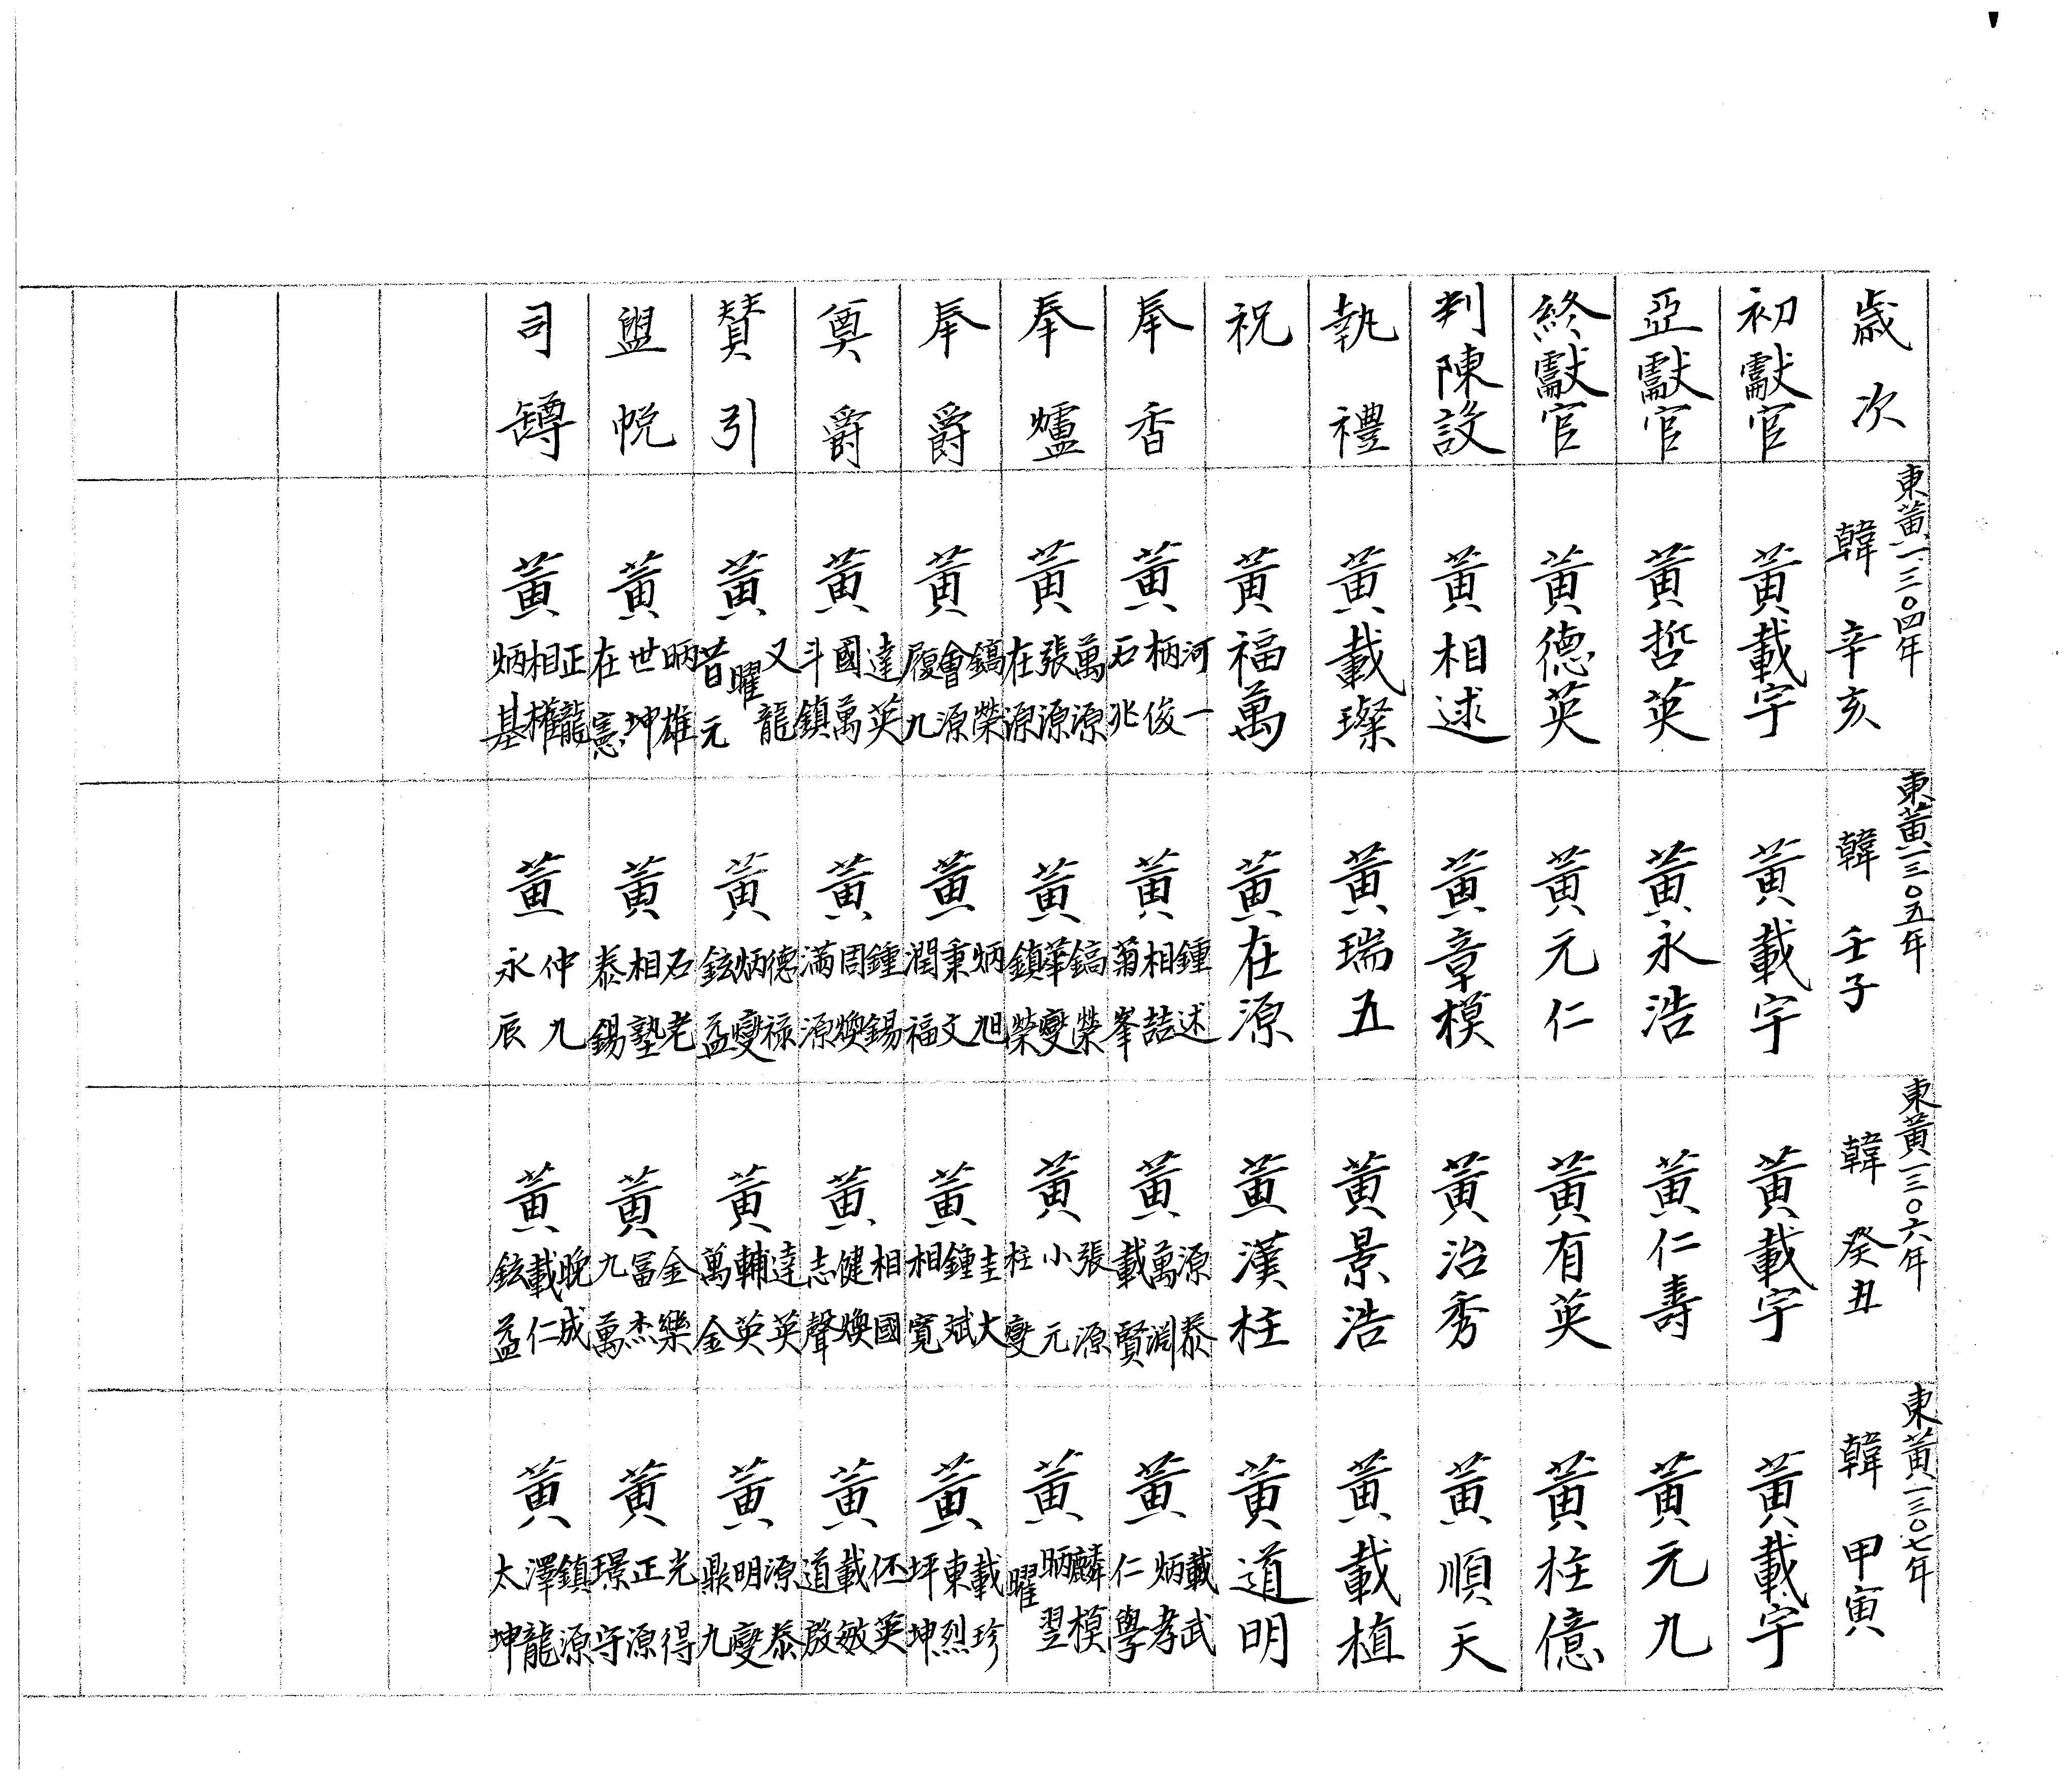 歲次
初獻官
亞獻官
終獻官
判陳設
執禮
祝
奉香
奉爐
奉爵
奠爵
贊引
盥帨
司罇
東黃一三〇四年
韓 辛亥
黃載宇
黃哲英
黃德英
黃相述
黃載璨
黃福萬
黃 河一 柄俊 石兆
黃 萬源 張源 在源
黃 鎬榮 會源 履九
黃 達英 國萬 斗鎮
黃 又龍 曜 昔元
黃 昞雄 世坤 在憲
黃 正龍 相權 炳基
東黃一三〇五年
韓 壬子
黃載宇
黃永浩
黃元仁
黃章模
黃瑞五
黃在源
黃 鍾述 相喆 菊峯
黃 鎬榮 華變 鎮榮
黃 炳旭 秉文 潤福
黃 鍾錫 周煥 滿源
黃 德祿 炳變 鉉益
黃 石老 相塾 泰錫
黃 仲九 永辰
東黃一三〇六年
韓 癸丑
黃載宇
黃仁壽
黃有英
黃治秀
黃景浩
黃漢柱
黃 源泰 萬淵 載賢
黃 張源 小元 柱變
黃 圭大 鍾斌 相寬
黃 相國 健煥 志聲
黃 達英 輔英 萬金
黃 金樂 富杰 九萬
黃 晚成 載仁 鉉益
東黃一三〇七年
韓 甲寅
黃載宇
黃元九
黃柱億
黃順天
黃載植
黃道明
黃 載武 炳孝 仁學
黃 麟模 昞翌 曜
黃 載珍 東烈 坪坤
黃 伾英 載敏 道啟
黃 源泰 明變 鼎九
黃 光得 正源 璟守
黃 鎮源 澤龍 太坤